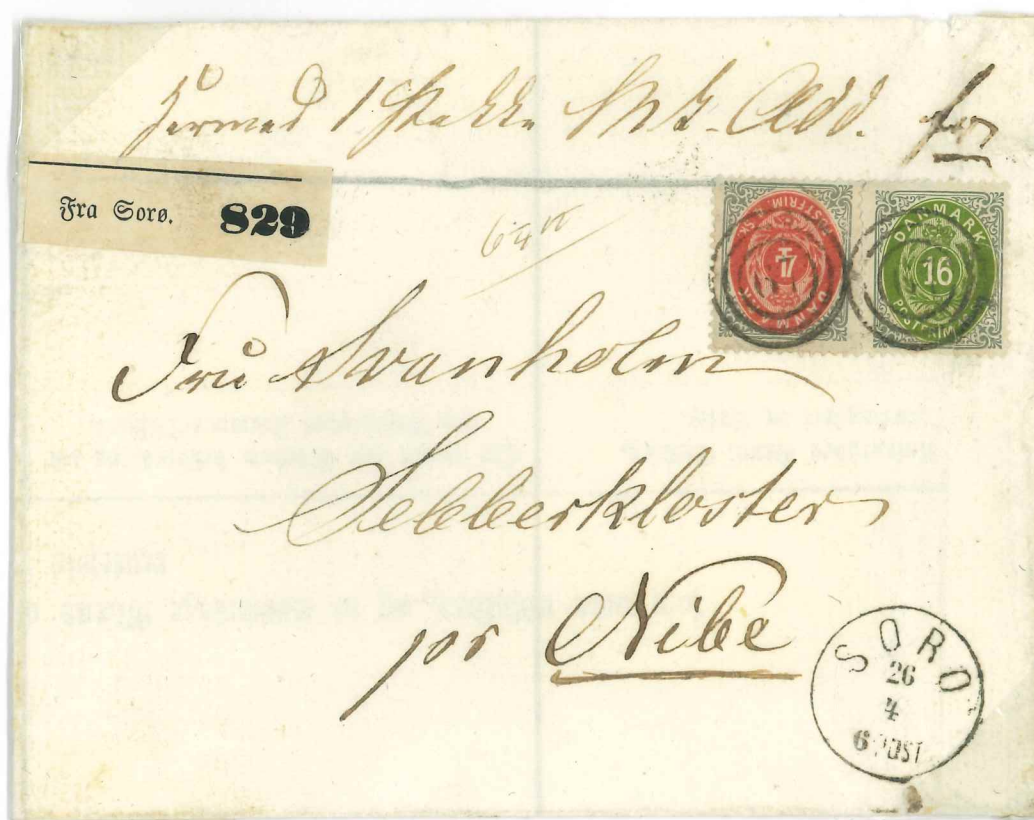 Hermed 1 Pakke Mk. Add. fra
Fra Sorø. 829
DANMARK
POSTFRIM. SK.
4
DANMARK
16
POSTFRIM
Fru Svanholm
Sebberkloster
pr Nibe
SORO
26
4
6 POST